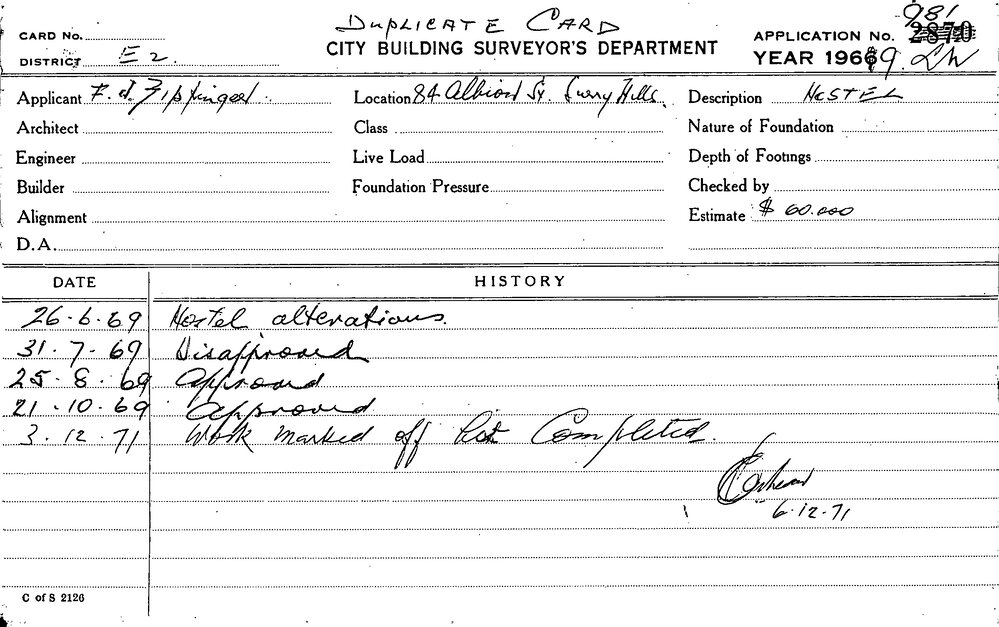 DUPLICATE CARD
CARD No.
CITY BUILDING SURVEYOR'S DEPARTMENT
981
APPLICATION No. 2870
DISTRICT E2.
YEAR 1969
Applicant F. J.
Location 84 Albion St. Surry Hills.
Description HOSTEL
Architect
Class
Nature of Foundation
Engineer
Live Load
Depth of Footings
Builder
Foundation Pressure
Checked by
Alignment
Estimate $ 60.000
D.A.
DATE HISTORY
26.6.69 Hostel alterations.
31.7.69 Disapproved
25.8.69 Approved
21.10.69 Approved
3.12.71 Work marked off Completed.
6.12.71
C of S 2126